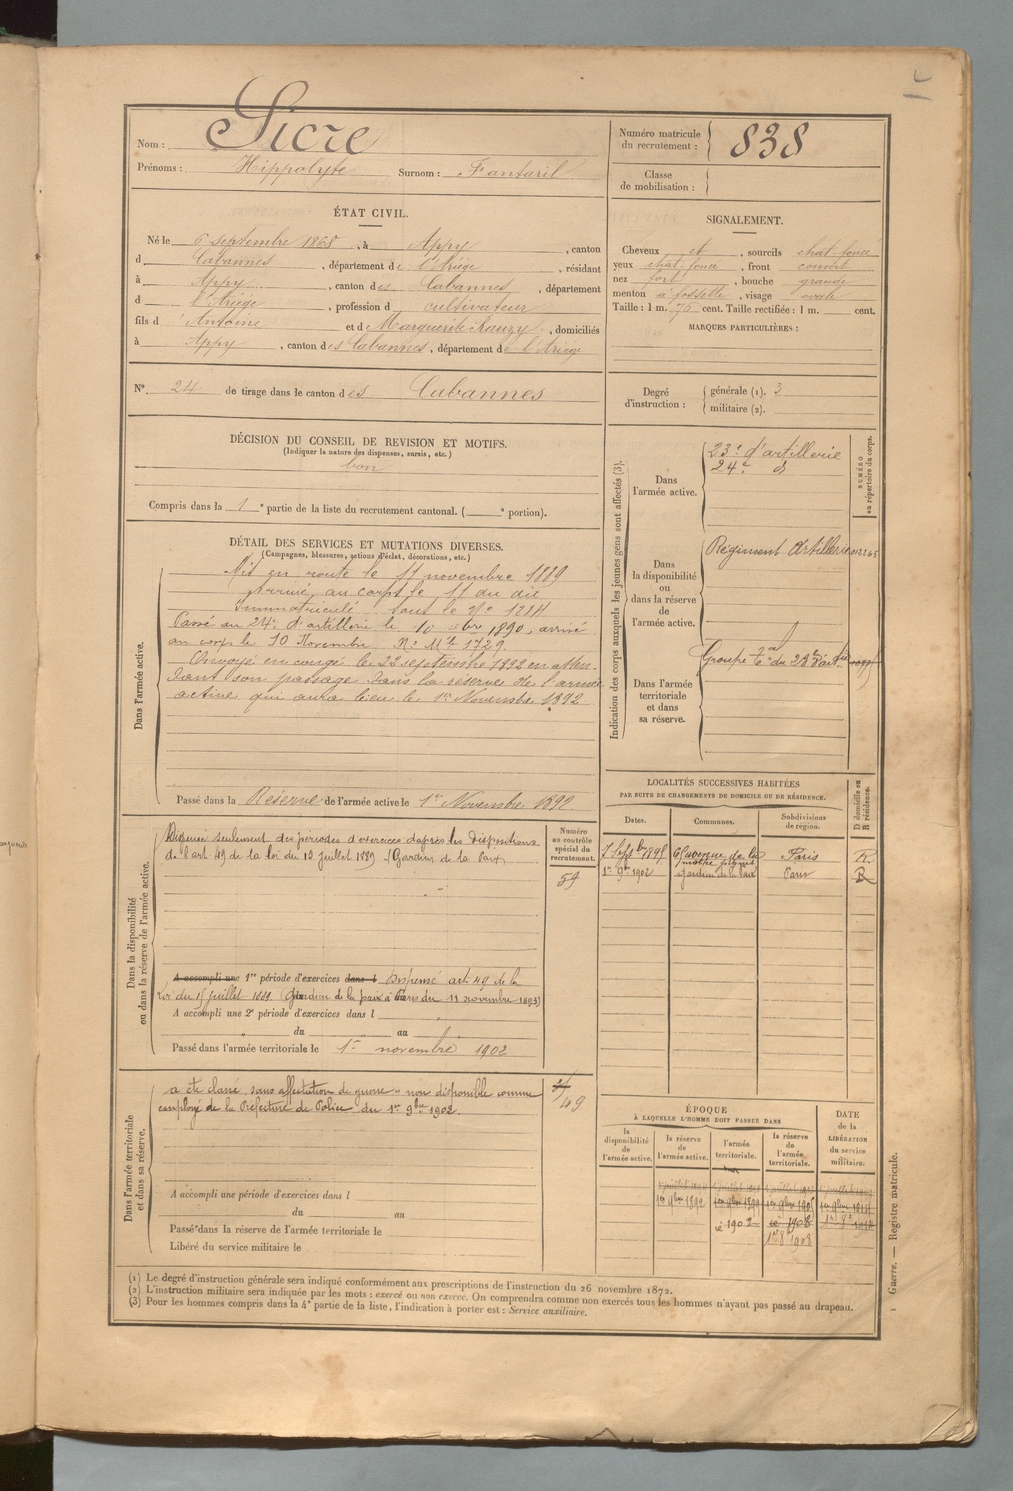 Nom : Sicre
Prénoms : Hippolyte Surnom : Fantaril
Numéro matricule du recrutement : 838
Classe de mobilisation :
ÉTAT CIVIL.
Né le 6 septembre 1868, à Appy, canton
d Cabannes, département de l'Ariège, résidant
à Appy, canton des Cabannes, département
d l'Ariège, profession d cultivateur
fils d'Antoine et d Marguerite Rauzy, domiciliés
à Appy, canton des Cabannes, département de l'Ariège
SIGNALEMENT.
Cheveux et, sourcils chat. foncé
yeux chat. foncé, front couvert
nez fort, bouche grande
menton à fossette, visage ovale
Taille : 1 m. 75 cent. Taille rectifiée : 1 m. cent.
MARQUES PARTICULIÈRES :
N° 24 de tirage dans le canton des Cabannes
Degré d'instruction : générale (1). 3
militaire (2).
DÉCISION DU CONSEIL DE REVISION ET MOTIFS.
(Indiquer la nature des dispenses, sursis, etc.)
bon
Compris dans la 1e partie de la liste du recrutement cantonal. ( e portion).
DÉTAIL DES SERVICES ET MUTATIONS DIVERSES.
(Campagnes, blessures, actions d'éclat, décorations, etc.)
Dans l'armée active.
Mis en route le 11 novembre 1889
Arrivé au corps le 11 du dit
Immatriculé sous le N° 1214
Passé au 24e d'artillerie le 10 9bre 1890, arrivé
au corps le 10 Novembre. N° Mle 1729.
Envoyé en congé le 22 septembre 1892 en atten-
dant son passage dans la réserve de l'armée
active qui aura lieu le 1er Novembre 1892
Passé dans la Réserve de l'armée active le 1er Novembre 1892
Indication des corps auxquels les jeunes gens sont affectés (3).
NUMÉRO au répertoire du corps.
Dans l'armée active.
23e d'artillerie
24e d
Dans la disponibilité ou dans la réserve de l'armée active.
Régiment Artillerie
Dans l'armée territoriale et dans sa réserve.
Groupe du 23e
Dans la disponibilité ou dans la réserve de l'armée active.
Numéro au contrôle spécial du recrutement.
Dispensé seulement des périodes d'exercices d'après les dispositions
de l'art 49 de la loi du 15 juillet 1889 (Gardien de la Paix)
59
A accompli une 1re période d'exercices dans l Dispensé art. 49 de la
Loi du 15 juillet 1889 (Gardien de la paix à Paris du 11 novembre 1893)
A accompli une 2e période d'exercices dans l
du au
Passé dans l'armée territoriale le 1er novembre 1902
LOCALITÉS SUCCESSIVES HABITÉES
PAR SUITE DE CHANGEMENTS DE DOMICILE OU DE RÉSIDENCE.
Dates. Communes. Subdivisions de région. D domicile ou R résidence.
7 Sept 1895 6 avenue de la Paris R.
1er 9bre 1902 gardien de la paix Paris R
Dans l'armée territoriale et dans sa réserve.
a été classé sans affectation de guerre non disponible comme
employé de la Préfecture de Police du 1er 9bre 1902.
49
A accompli une période d'exercices dans l
du au
Passé dans la réserve de l'armée territoriale le
Libéré du service militaire le
ÉPOQUE
À LAQUELLE L'HOMME DOIT PASSER DANS
la disponibilité de l'armée active. la réserve de l'armée active. l'armée territoriale. la réserve de l'armée territoriale.
DATE de la LIBÉRATION du service militaire.
1er 9bre 1892 1er 9bre 1899
1902 1908
(1) Le degré d'instruction générale sera indiqué conformément aux prescriptions de l'instruction du 26 novembre 1872.
(2) L'instruction militaire sera indiquée par les mots : exercé ou non exercé. On comprendra comme non exercés tous les hommes n'ayant pas passé au drapeau.
(3) Pour les hommes compris dans la 4e partie de la liste, l'indication à porter est : Service auxiliaire.
1 Guerre. — Registre matricule.